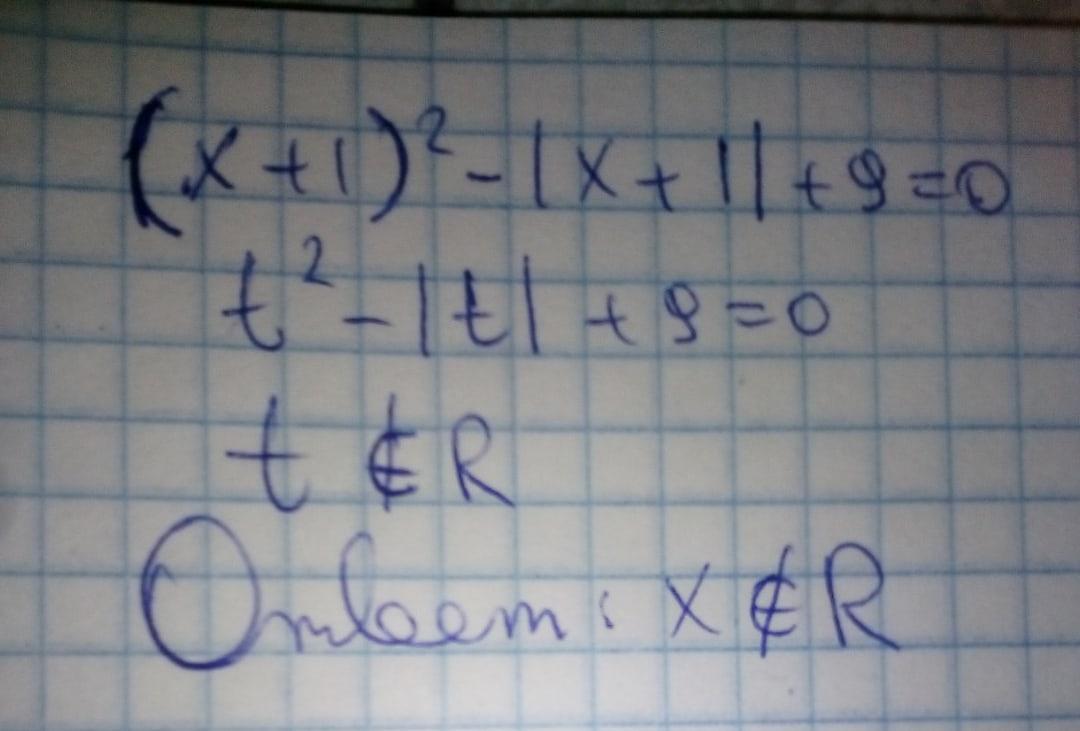 (x+1)²-|x+1|+9=0
t²-|t|+9=0
t∉R
Ответ: x∉R